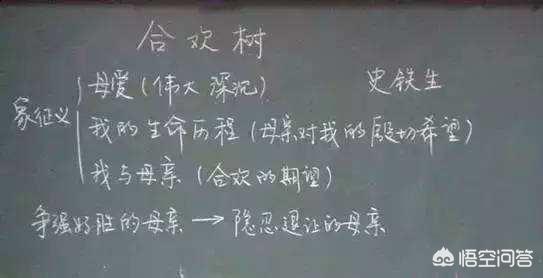 合欢树
母爱(伟大 深沉) 史铁生
象征义 我的生命历程(母亲对我的殷切希望)
我与母亲(合欢的期望)
争强好胜的母亲→隐忍退让的母亲
悟空问答